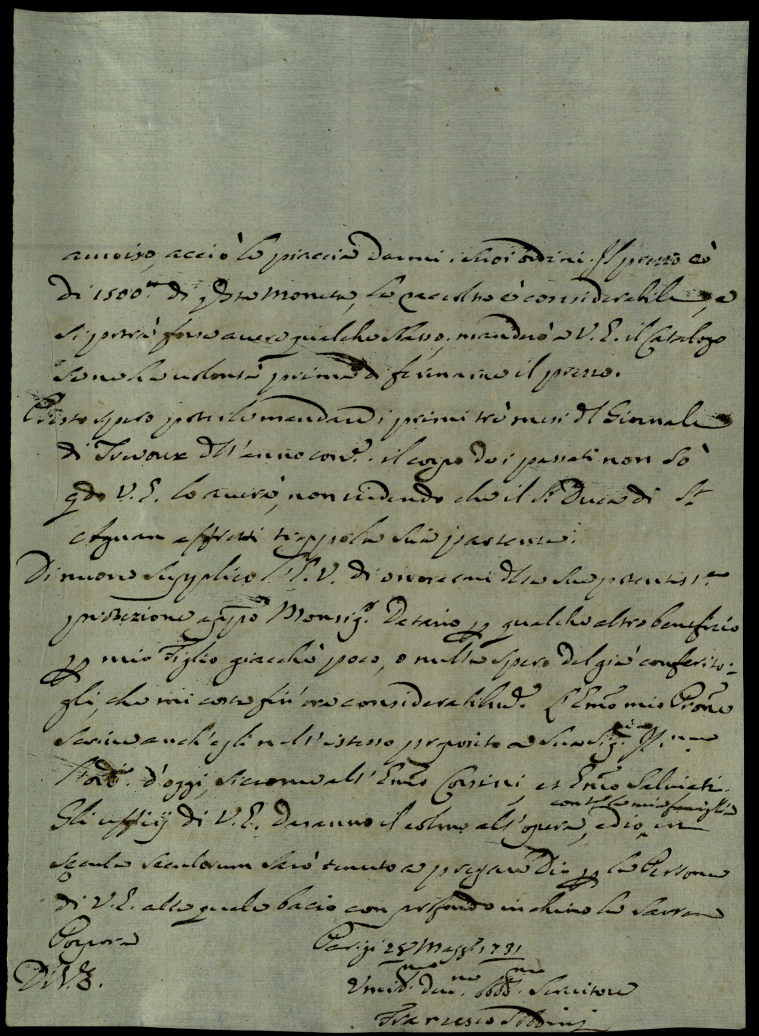 avviso, acciò le piaccia darmi i suoi ordini. Il prezzo è
di 1500 di qsta moneta, la raccolta è considerabile, e
si potrà forse avere qualche ; manderò a V. E. il Catalogo
se ne ha volontà prima di fermare il prezzo.
Presto spero poterle mandare i primi trè mesi dl Giornale
di Trevoux dll'anno corr.e. il corpo dei passati non sò
qdo V. E. lo averà, non vedendo che il Sr. Duca di St.
Agnan affretti troppo la sua partenza.
Di nuovo supplico l'E. V. di onorarmi dlla sua potentiss.ma
protezione appo Monsig.r Datario per qualche altro beneficio
per mio Figlio giacchè poco, o nulla spero del già conferito-
gli, che mi costa fin'ora considerabilm.e. L'Emo mio Prone
scrive anch'egli nell'istesso proposito a Sua Sig.ria Ill.ma
d'oggi, siccome all'Emo Corsini, et Emo Salviati.
Gli ufficij di V. E. daranno il colmo all'opera, ed io, con tutta la mia famiglia in
secula seculorum sarò tenuto a pregare Dio per la Persona
di V. E. alla quale bacio con profondo inchino la Sacra
Porpora
Parigi 28 Magg.o 1731
Di V. E.
Umil.mo dev.mo obb.mo Servitore
Francesco